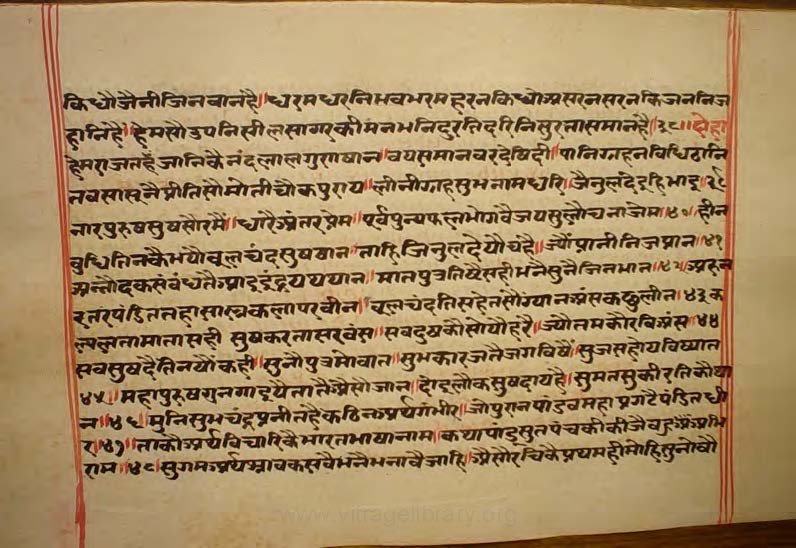 किधौजैनीजिनवानहै॥धरमधरनिभवभरमहरनकिधोअसरनसरनकिजननिज
हानिहै॥हेमसौउपनिसीलसागरकीमनभनिदुरतिदरिनिसुरनासमानहै॥३८॥दोहा
हेमराजतहंजानिकैनंदलालगुरावान॥वयसमानवरदेषिदी॥पानिग्रहनविधिठानि
तवसासुनैप्रीतिसौमोतीचौकपुराय॥लीनीग्रहसुभनामधरि॥जैनुलदेइहिभाइ॥३९
नारपुरुषसुषसौरमैं॥धारैअंतरप्रेम॥पूर्वपुन्यफलभोगवैजयसुलोचनाजेम॥४०॥हीन
बुधितिनकैभयौबूलचंदसुषषान॥ताहिजिनुलदेयौचहै॥ज्यौंप्रानीनिजप्रान॥४१
अन्नोदकसंवंधतैआइइंद्रपथथान॥मातपुत्रतिष्टेसहीभनैसुनैजिनभान॥४२॥अरुन
रतनपंडिततहासास्त्रकलापरवीन॥बूलचंदतिसहेतसौग्यानअंसकछुलीन॥४३क
ल्पलतामातासही॥सुषकरतासरवंस॥सबदुषकौसोयौहरै॥ज्यौतमकौरविअंस॥४४
सबसुषदैतिनयौंकही॥सुनौपुत्रमोवात॥सुभकारजतैजगविषैं॥सुजसहोयविष्यात
४५॥महापुरुषगुनगाइयैतातैअैसोजान॥दोइलोकसुषदायहै॥सुमतसुकीरतिकौथा
न॥४६॥मुनिसुभचंद्रप्रनीतहैकठिनअर्थगंभीर॥जोपुरानपांडवमहाप्रगटैपंडितधी
र॥४७॥ताकौअर्थविचारिकैभारतभाषानाम॥कथापांडुसुतपंचकीकीजैवहुअभि
राम॥४८॥सुगमअर्थश्रावकसवैभनैभनावैजाहि॥अैसोरचिकैप्रथमहीमोहिसुनोवौ
www.vitragelibrary.org